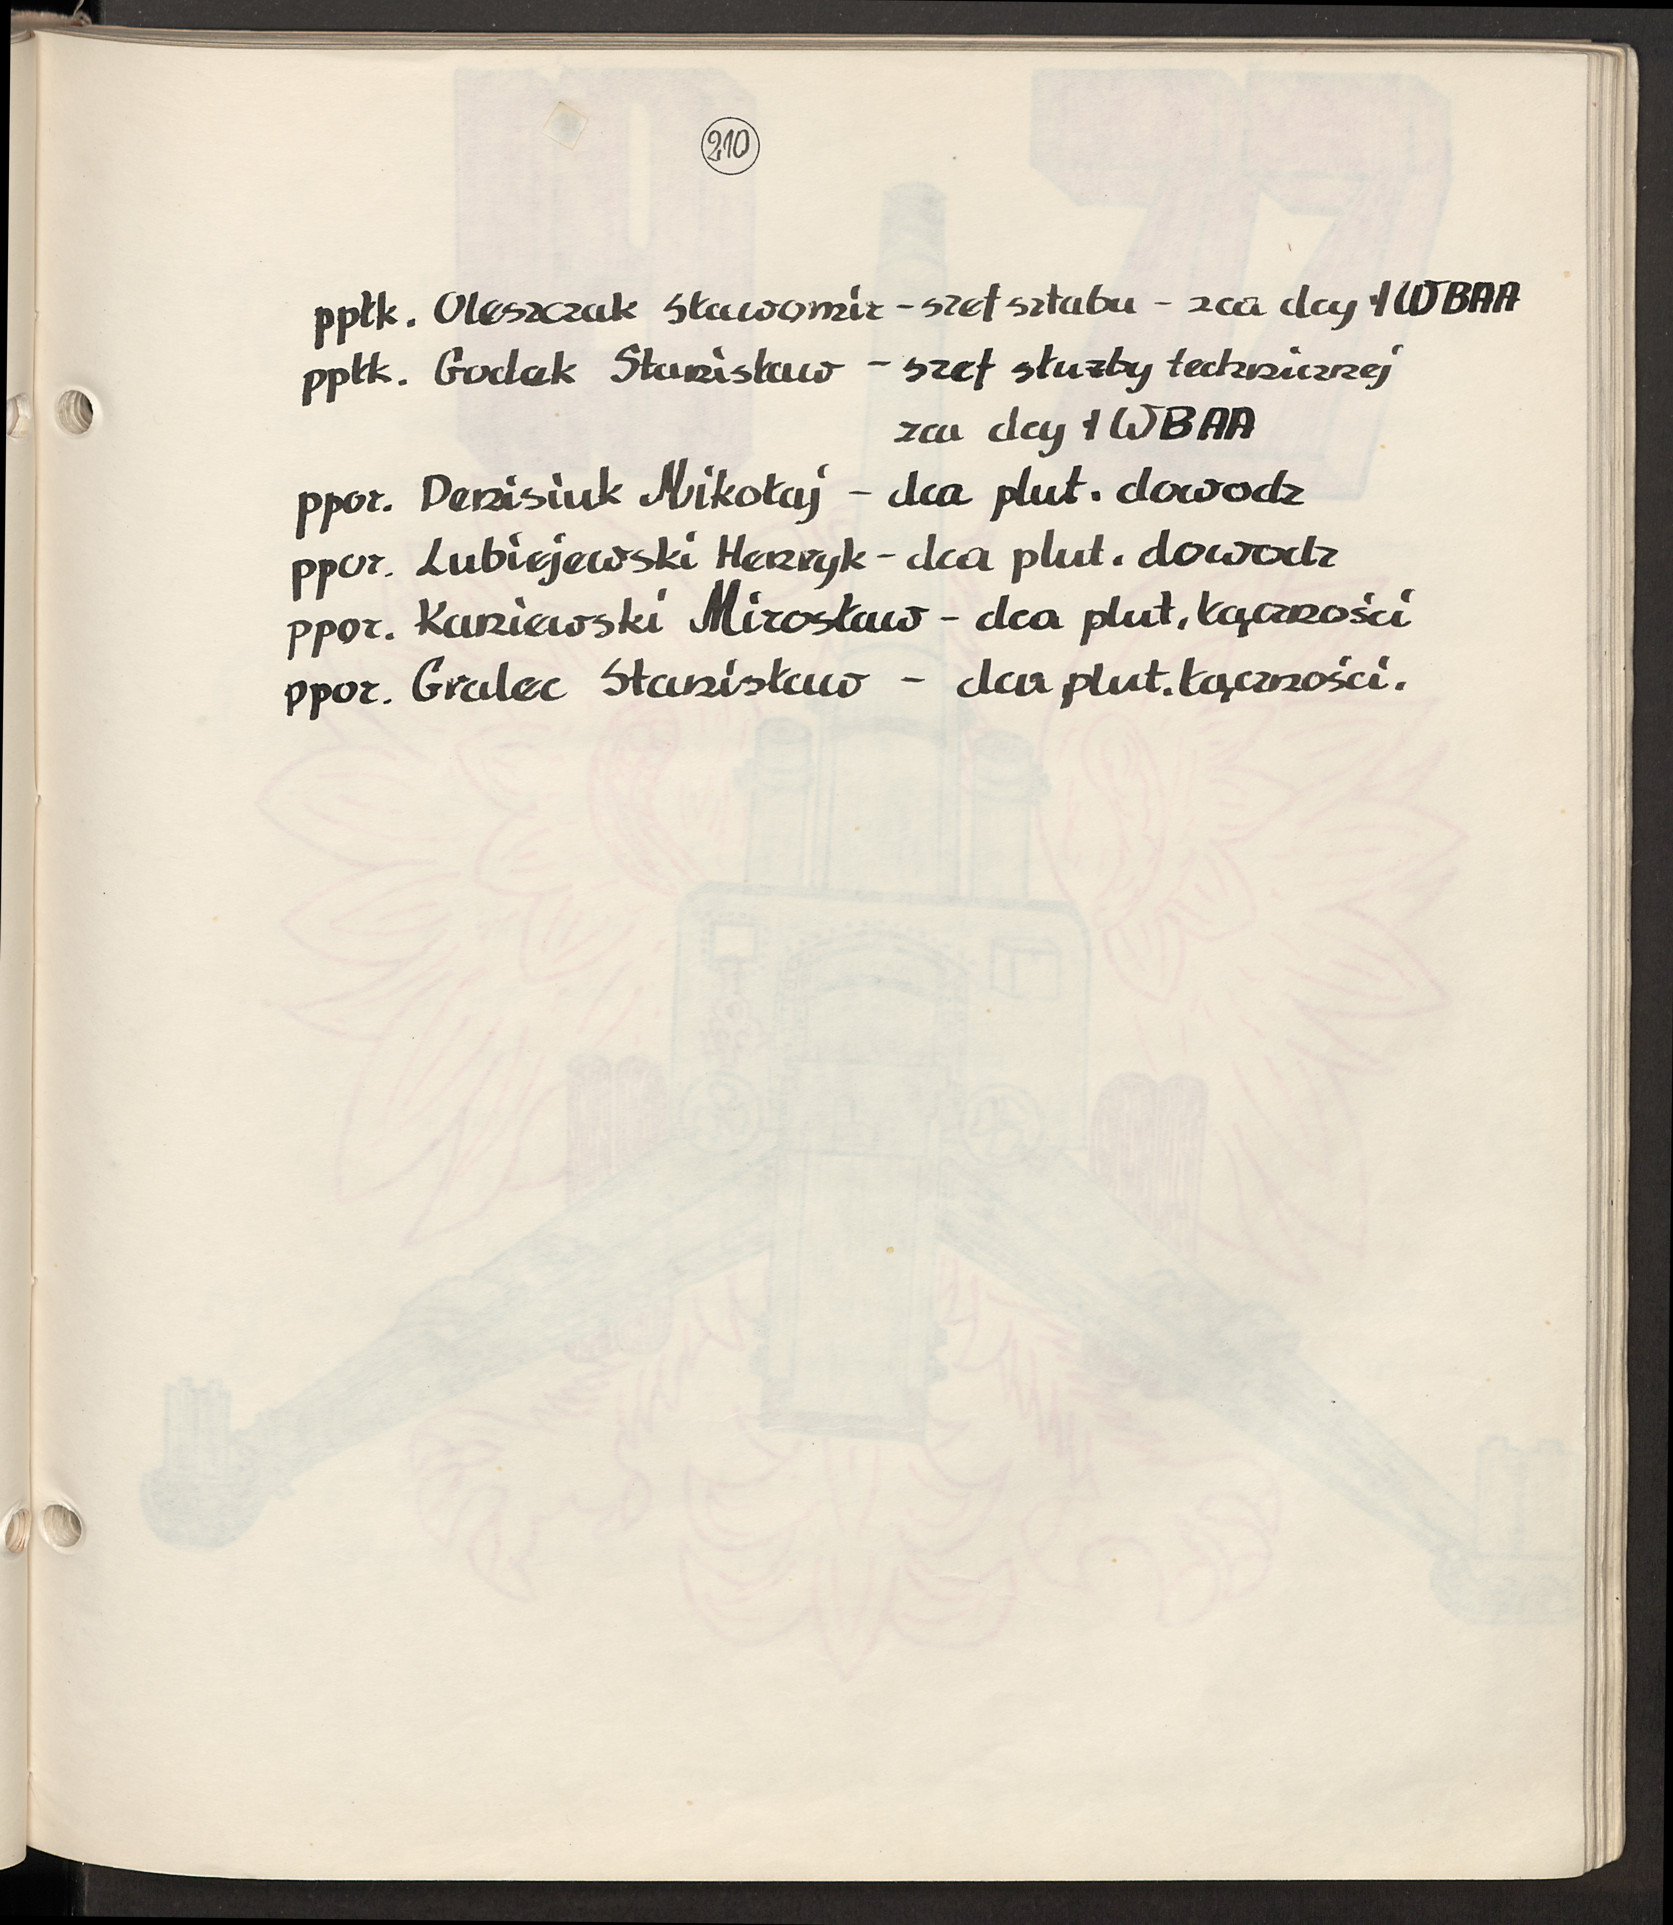 210
ppłk. Oleszczak Sławomir - szef sztabu - zca dcy 1 WBAA
ppłk. Godek Stanisław - szef służby technicznej
zca dcy 1 WBAA
ppor. Denisiuk Mikołaj - dca plut. dowodz
ppor. Lubiejewski Henryk - dca plut. dowodz
ppor. Kaniewski Mirosław - dca plut. łączności
ppor. Gralec Stanisław - dca plut. łączności.